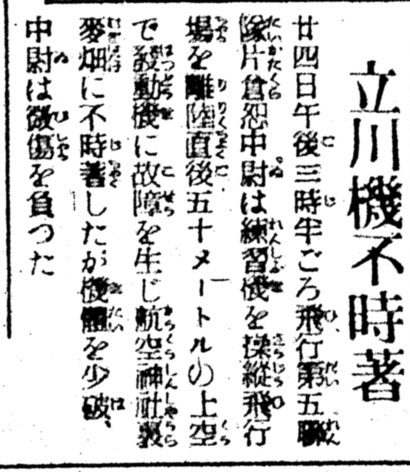 立川機不時著
廿四日午後三時半ごろ飛行第五聯
隊片倉恕中尉は練習機を操縦飛行
場を離陸直後五十メートルの上空
で発動機に故障を生じ航空神社裏
麥畑に不時著したが機體を少破、
中尉は微傷を負つた